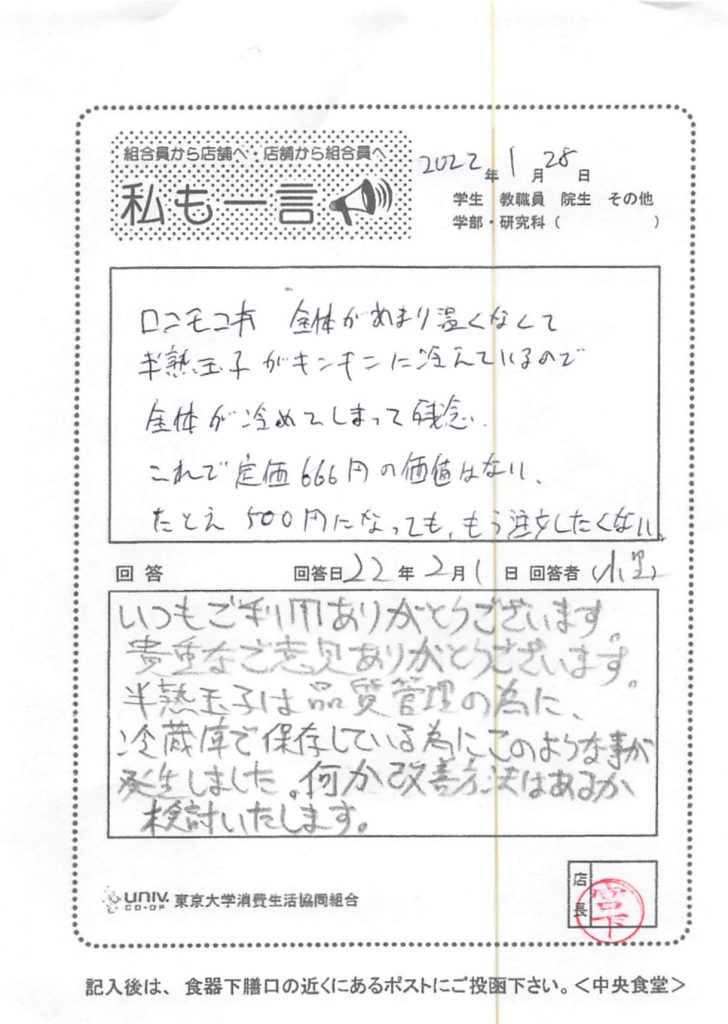 組合員から店舗へ・店舗から組合員へ
私も一言
2022年1月28日
学生 教職員 院生 その他
学部・研究科（　　　　　）
ロコモコ丼 全体があまり温くなくて
半熟玉子がキンキンに冷えているので
全体が冷めてしまって残念.
これで定価666円の価値はない、
たとえ500円になっても、もう注文したくない。
回答 回答日22年2月1日 回答者（小里）
いつもご利用ありがとうございます。
貴重なご意見ありがとうございます。
半熟玉子は品質管理の為に、
冷蔵庫で保存している為にこのような事が
発生しました。何か改善方法はあるか
検討いたします。
univ. CO-OP 東京大学消費生活協同組合
店長 宮下
記入後は、食器下膳口の近くにあるポストにご投函下さい。＜中央食堂＞